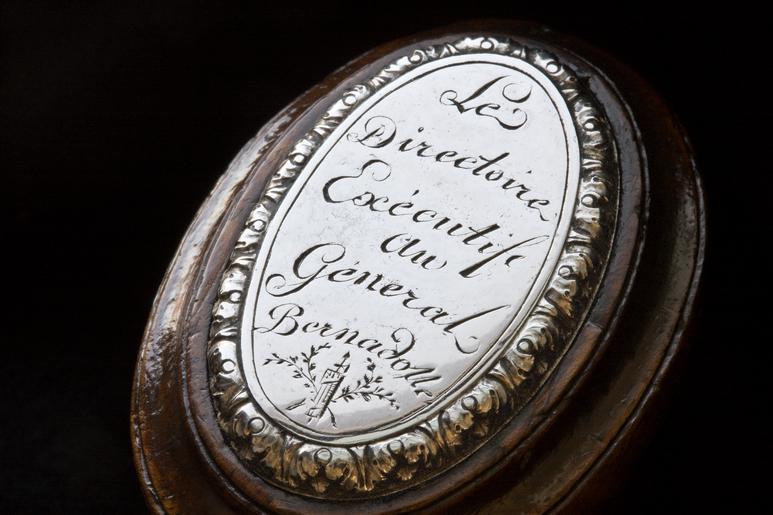 Le
Directoire
Exécutif
au
Général
Bernadotte